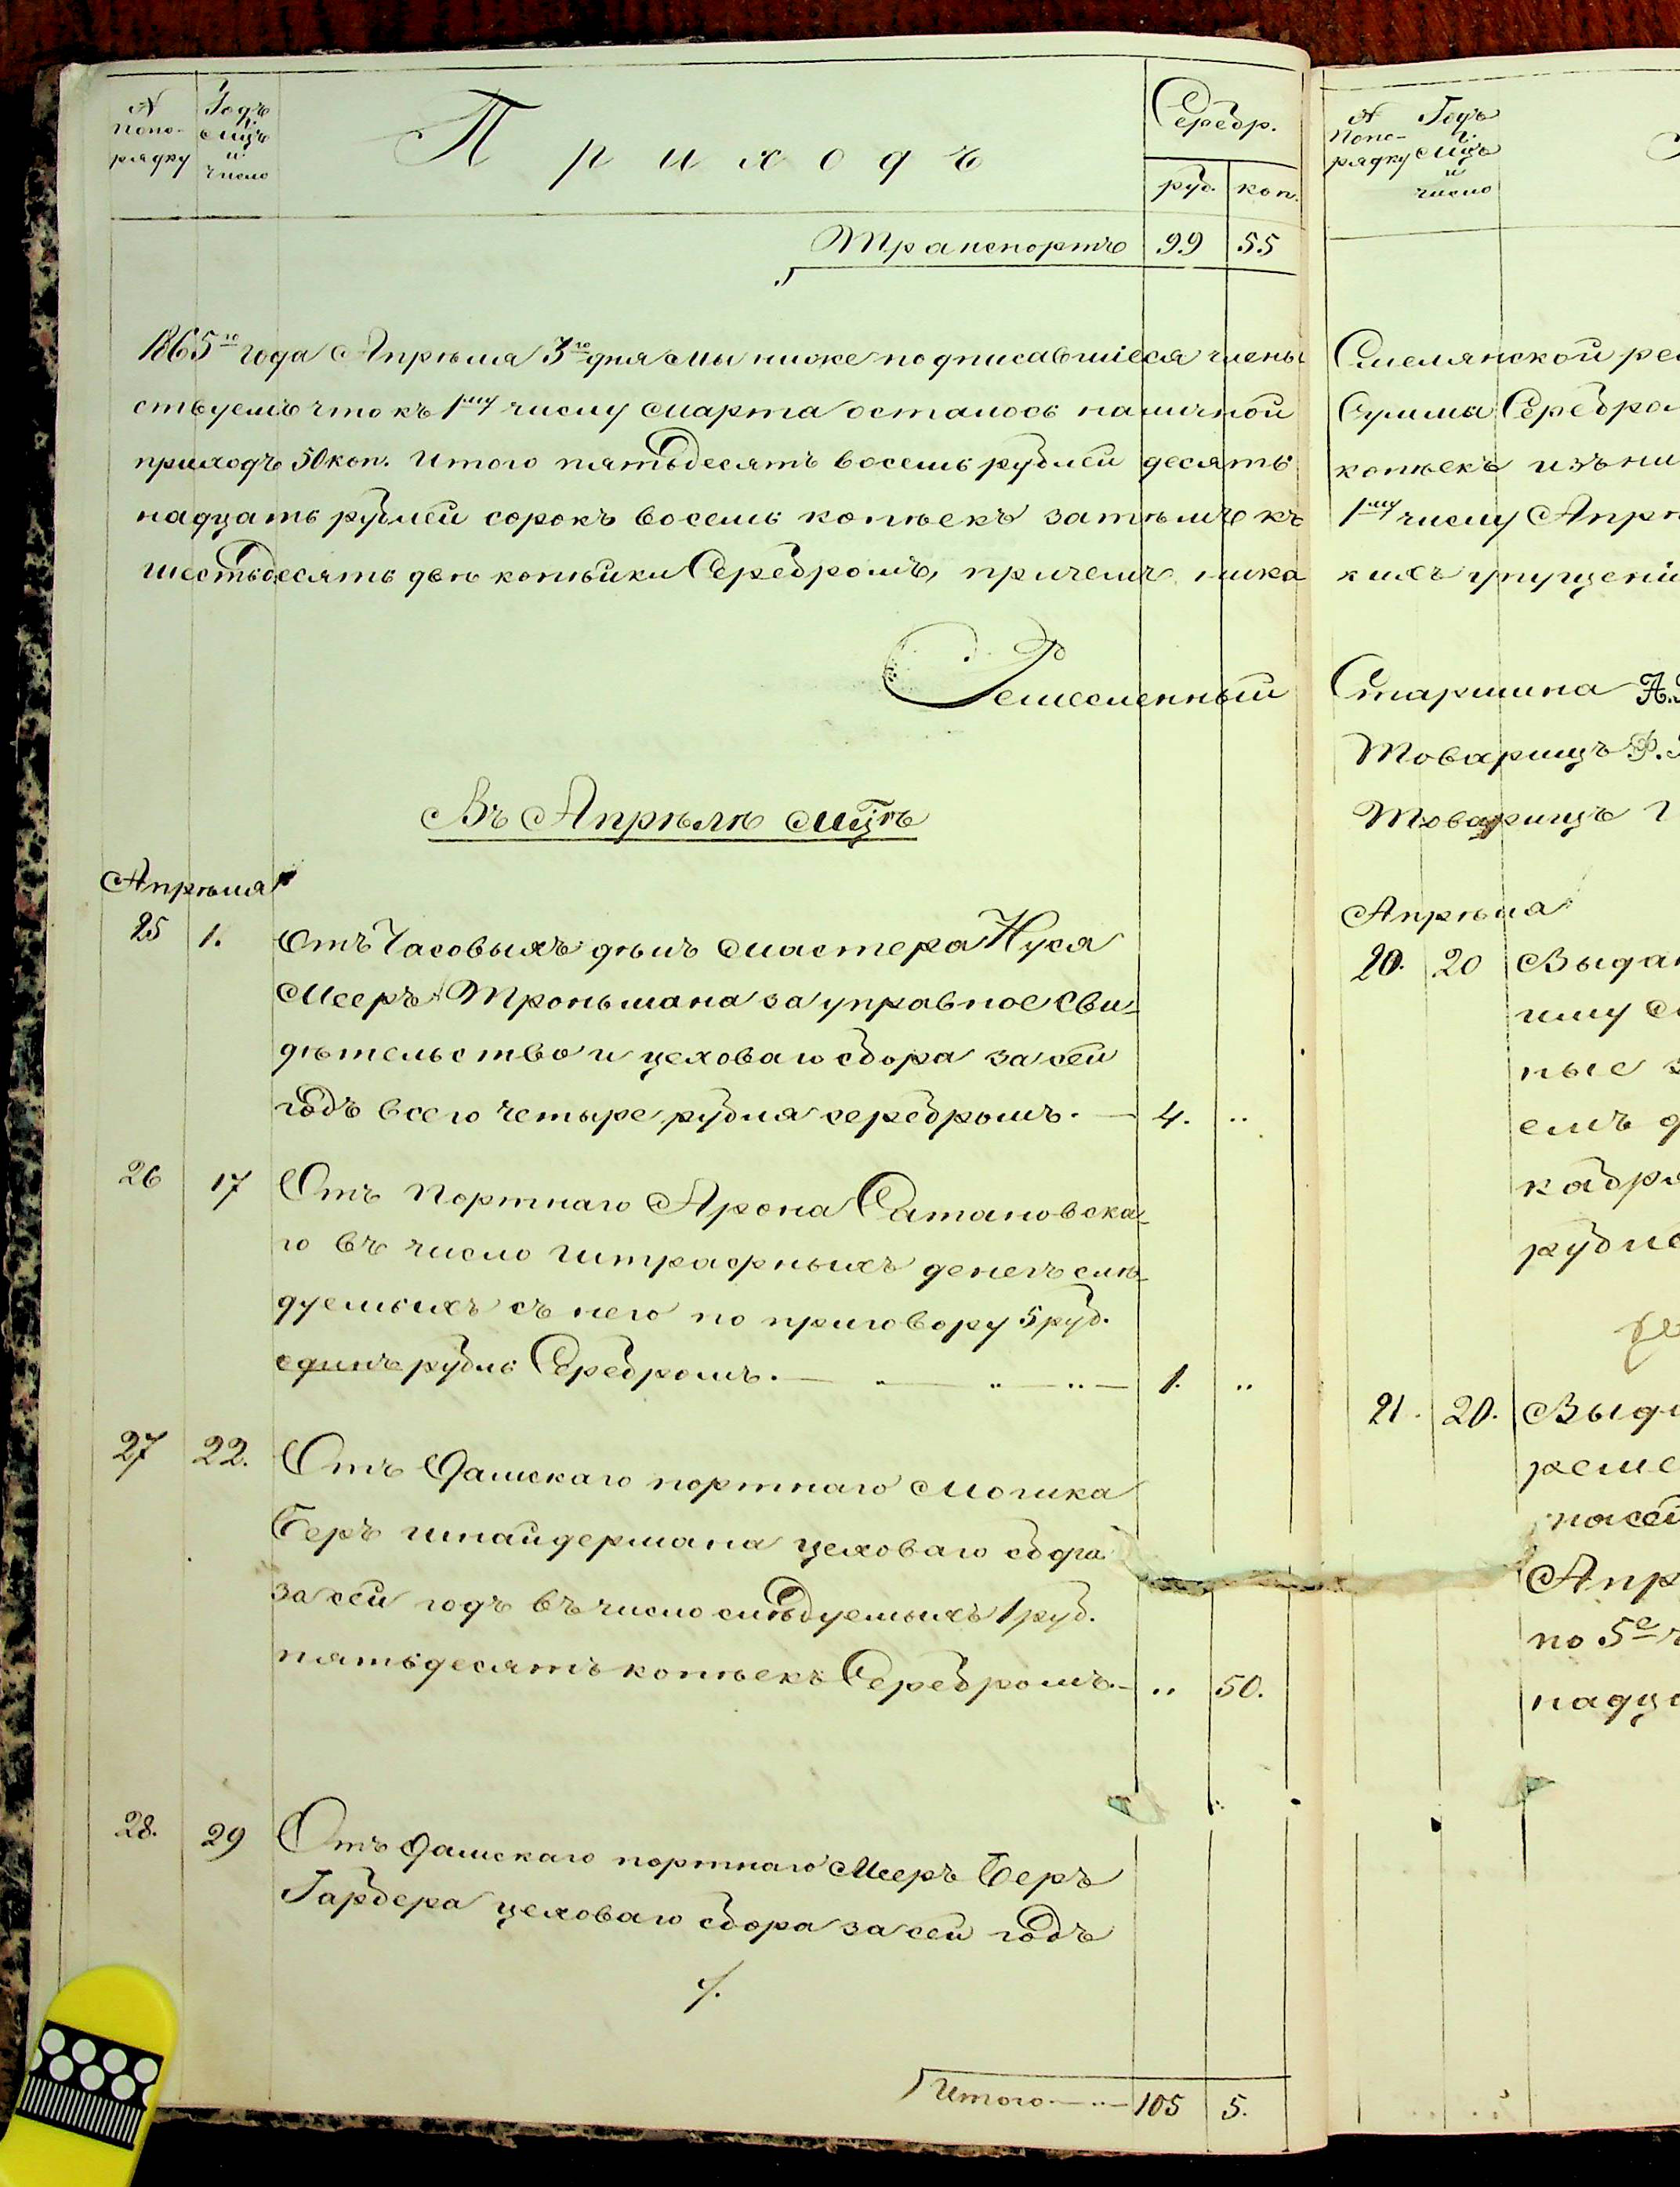 № Годъ
попо- мцъ
рядку и
число
Приходъ
Серебр.
руб. коп.
Транспортъ 99 55
1865го года Апрѣля 3го дня мы ниже подписавшіеся члены
ствуемъ что къ 1му числу марта осталось наличной
приходъ 50 коп. Итого пятьдесятъ восемь рублей десять
надцать рублей сорокъ восемь копѣекъ затѣмъ къ
шестьдесятъ двѣ копѣйки Серебромъ, причемъ ника
Ремесленный
Въ Апрѣлѣ мцѣ
Апрѣля
25 1. Отъ Часовыхъ дѣлъ мастера Нуся
Мееръ Троньмана за управное сви-
дѣтельство и цеховаго сбора за сей
годъ всего четыре рубля серебромъ. — 4. ..
26 17 Отъ Портнаго Арона Сатановска-
го въ число штрафныхъ денегъ слѣ-
дуемыхъ съ него по приговору 5 руб.
единъ рубль Серебромъ. — 1. ..
27 22. Отъ Дамскаго портнаго Мошка
Беръ шнайдермана цеховаго сбора
за сей годъ въ число слѣдуемыхъ 1 руб.
пятьдесятъ копѣекъ Серебромъ. — .. 50.
28. 29 Отъ Дамскаго портнаго Мееръ Беръ
Гарбера цеховаго сбора за сей годъ
Итого — 105 5.
№ Годъ
попо- и
рядку мцъ
и
число
Смелянской ре
Сумма Серебро
копѣекъ изъ ни
1му числу Апрѣ
кихъ упущені
Старшина А.
Товарищъ Ф.
Товарищъ Г
Апрѣля
20. 20 Выдан
шму с
ные з
емъ д
кабря
рубле
21. 20. Выда
реме
посей
Апр
по 5е ч
надца